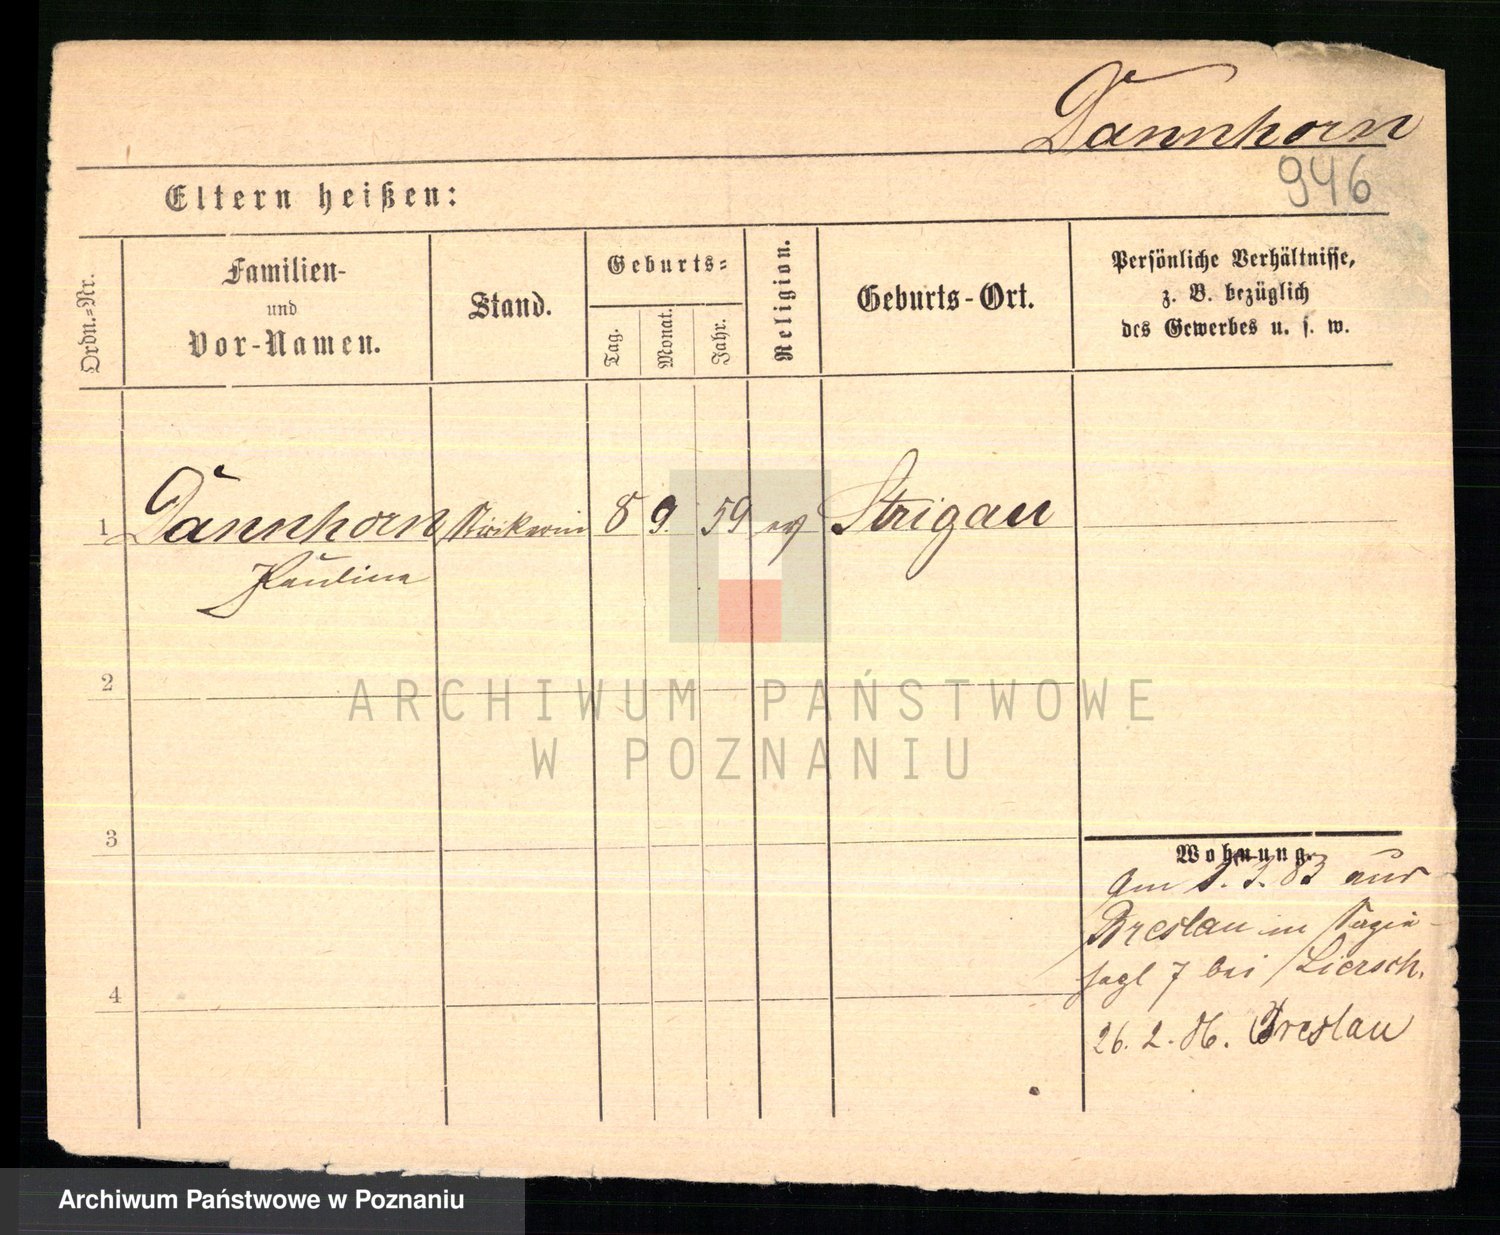 Dannhorn
946
Eltern heißen:
Ordn.-Nr.
Familien-
und
Vor-Namen.
Stand.
Geburts-
Tag.
Monat.
Jahr.
Religion.
Geburts-Ort.
Persönliche Verhältnisse,
z. B. bezüglich
des Gewerbes u. s. w.
1 Dannhorn 8 9. 59 ev Strigau
Paulina
2
3
4
Wohnung.
Am 83 aus
Breslau in
7 bei Liersch.
26. 2. 86. Breslau
ARCHIWUM PAŃSTWOWE
W POZNANIU
Archiwum Państwowe w Poznaniu